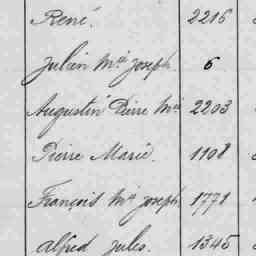 René. 2216
Julien Mie Joseph. 6
Augustin Pierre Mie 2203
Pierre Marie. 1108
François Mie Joseph 1771
Alfred Jules. 1345